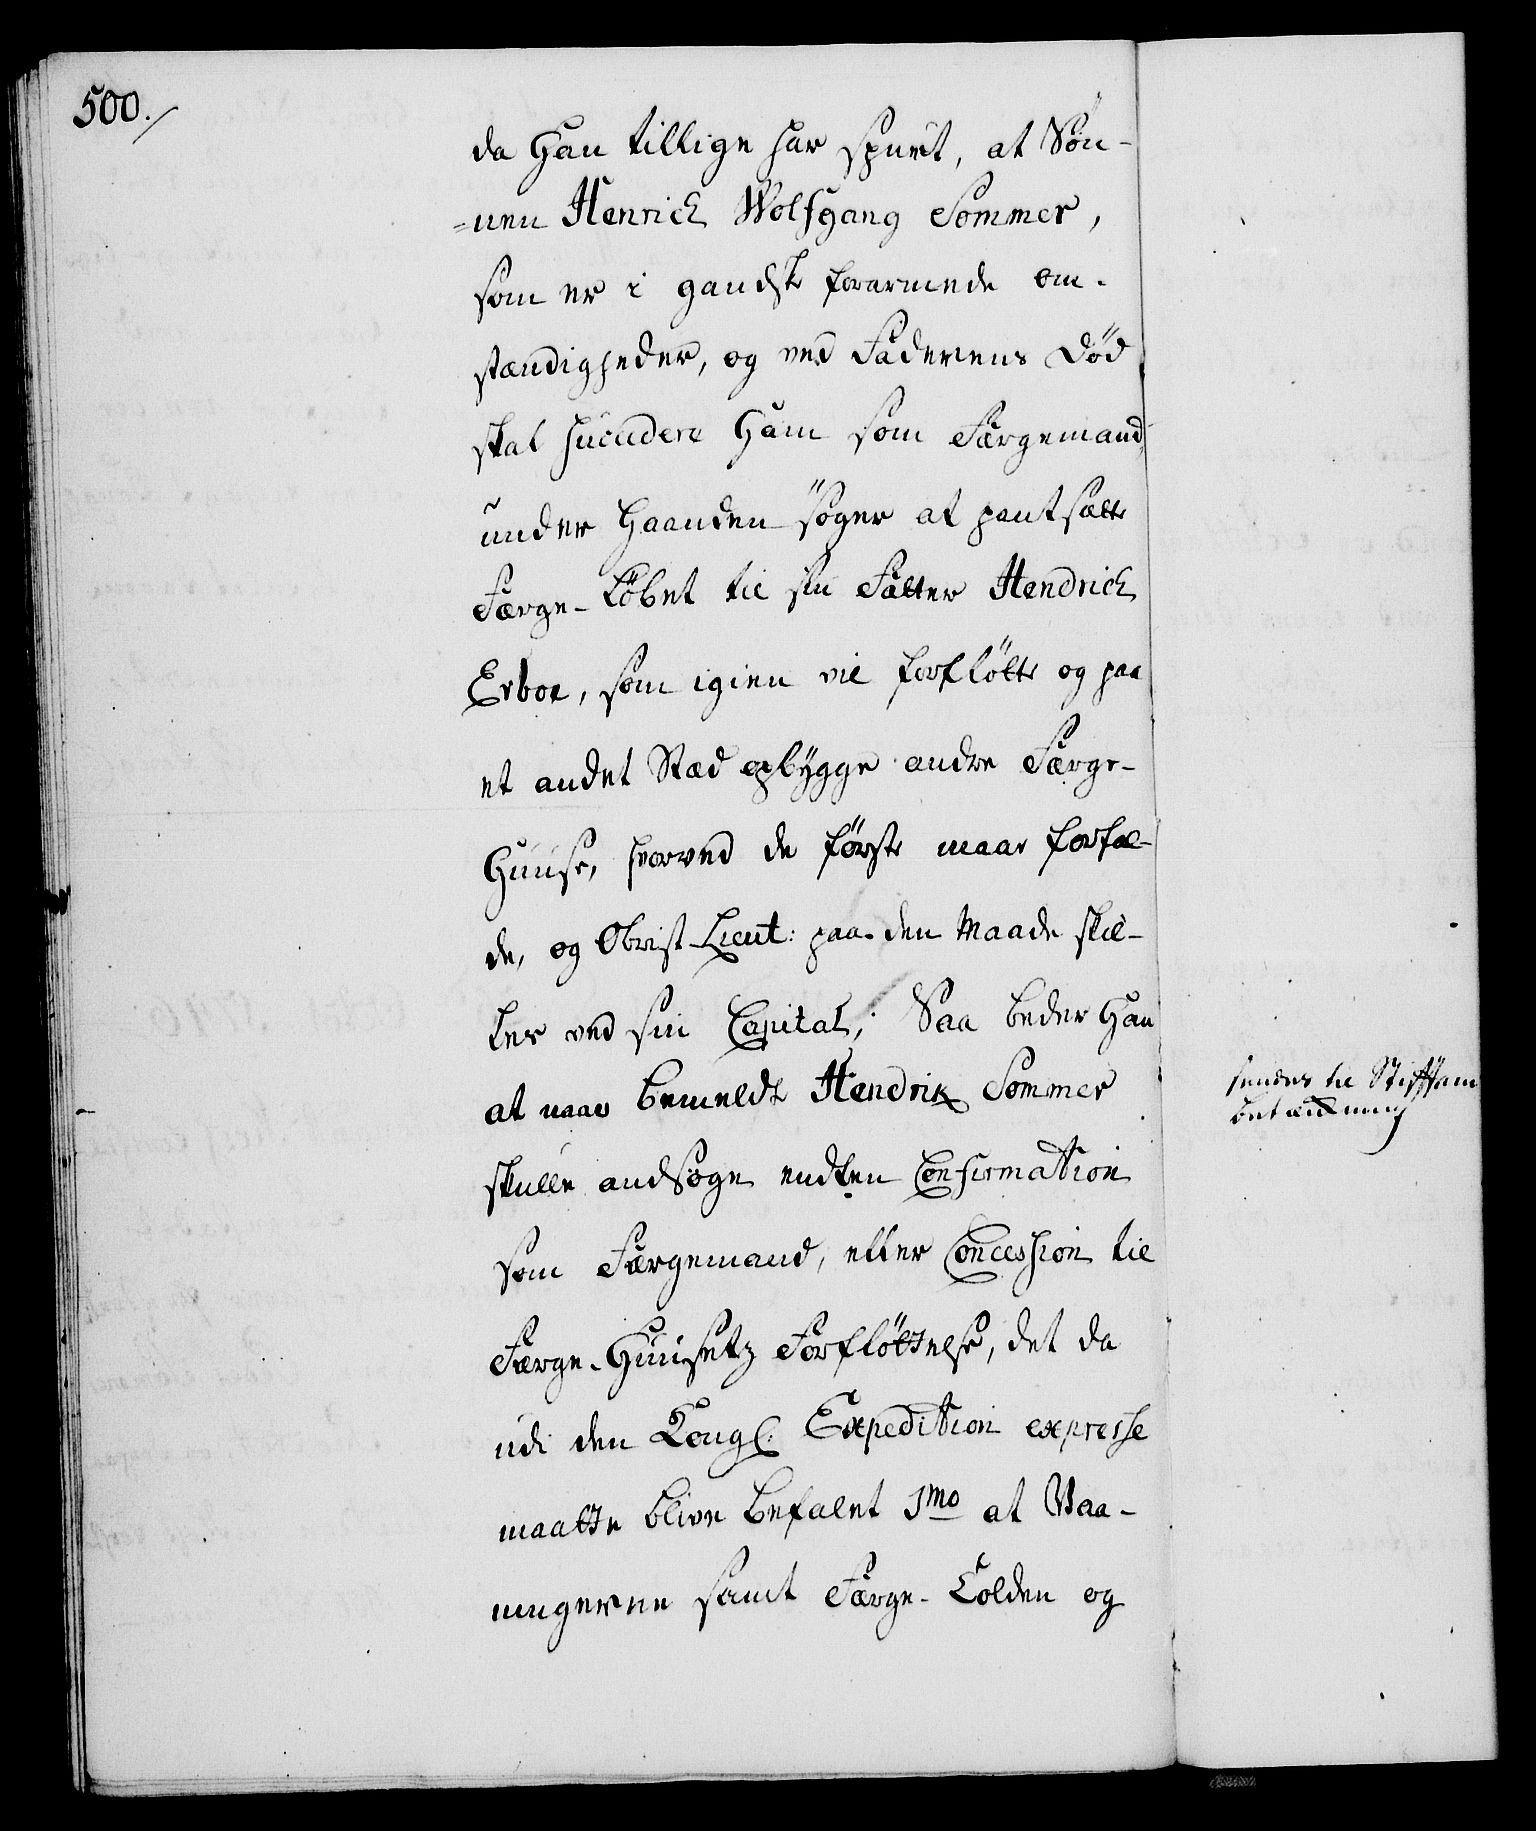 500./
da Han tillige har spurt, at Søn-
=nen Henrich Wolfgang Sommer,
som er i gandske forarmede om-
stændigheder, og ved Faderens Død
skal succedere Ham som Færgemand,
under Haanden søger at pantsætte
Færge-Løbet til sin Fætter Hendrich
Erboe, som igien vil forfløtte og paa
et andet Stæd opbygge andre Færge-
Huuse, hvorved de første maae forfal-
de, og Obrist-Lieut: paa den Maade skil-
les ved sin Capital; Saa beder Han
at naar bemeldte Hendrik Sommer
skulle andsøge endten Confirmation
som Færgemand, eller Concession til
Færge-Huusetz Forfløttelse, det da
udi den Kongl: Expedition expresse
maatte blive befalet 1mo at Vaa-
ningerne samt Færge-Tolden og
sendes til Stiftam
betænkning